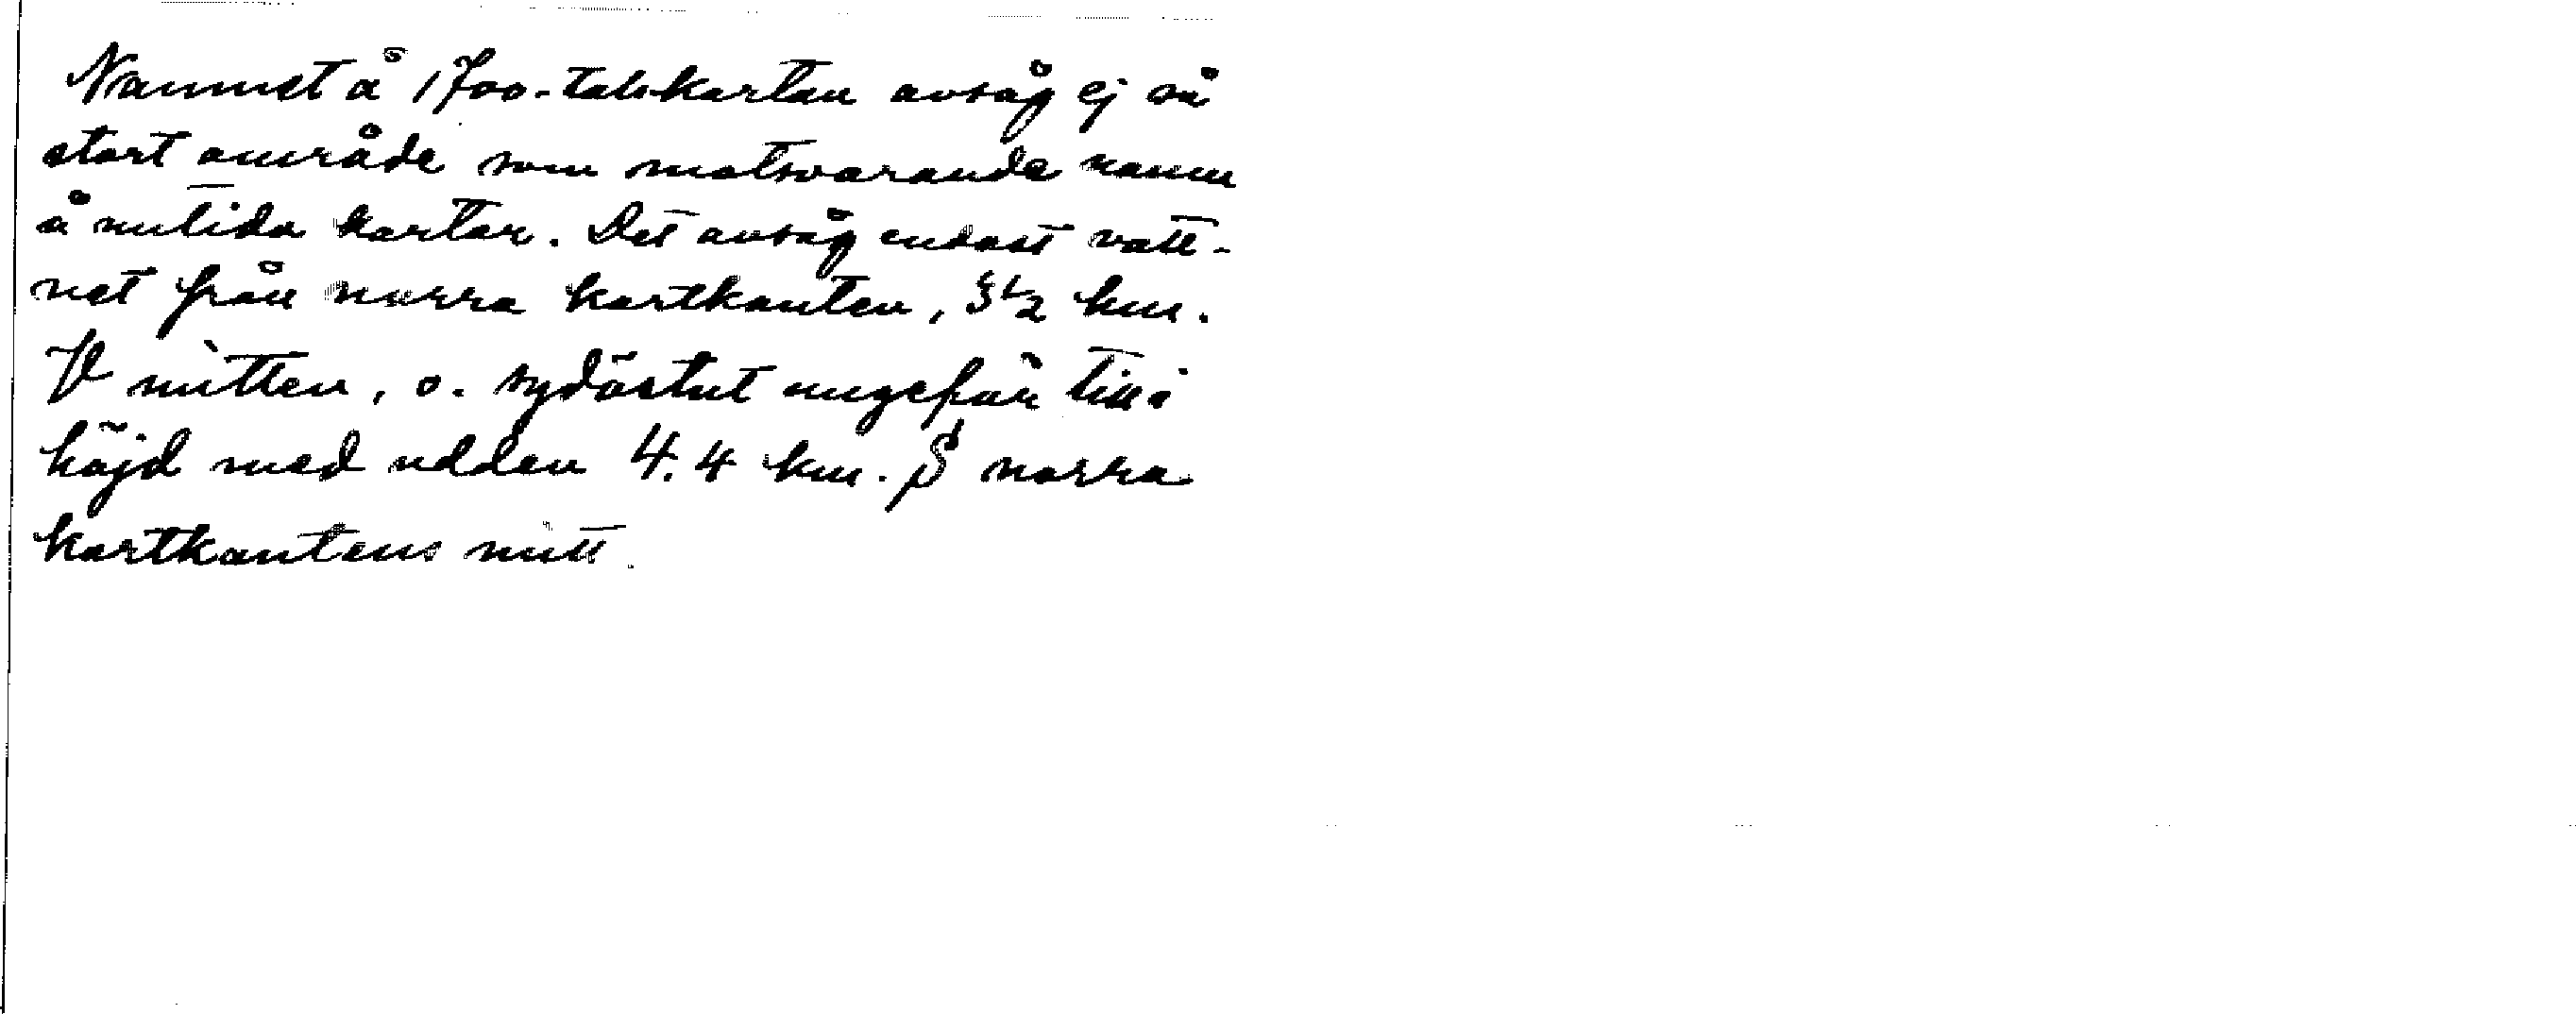 Namnet å 1700-talskartan avsåg ej så
stort område som motsvarande namn
å nutida kartor. Det avsåg endast vatt-
net från norra kartkanten, 3 1/2 km.
V mitten, o. sydöstut ungefär till i
höjd med udden 4.4 km. S norra
kartkantens mitt.